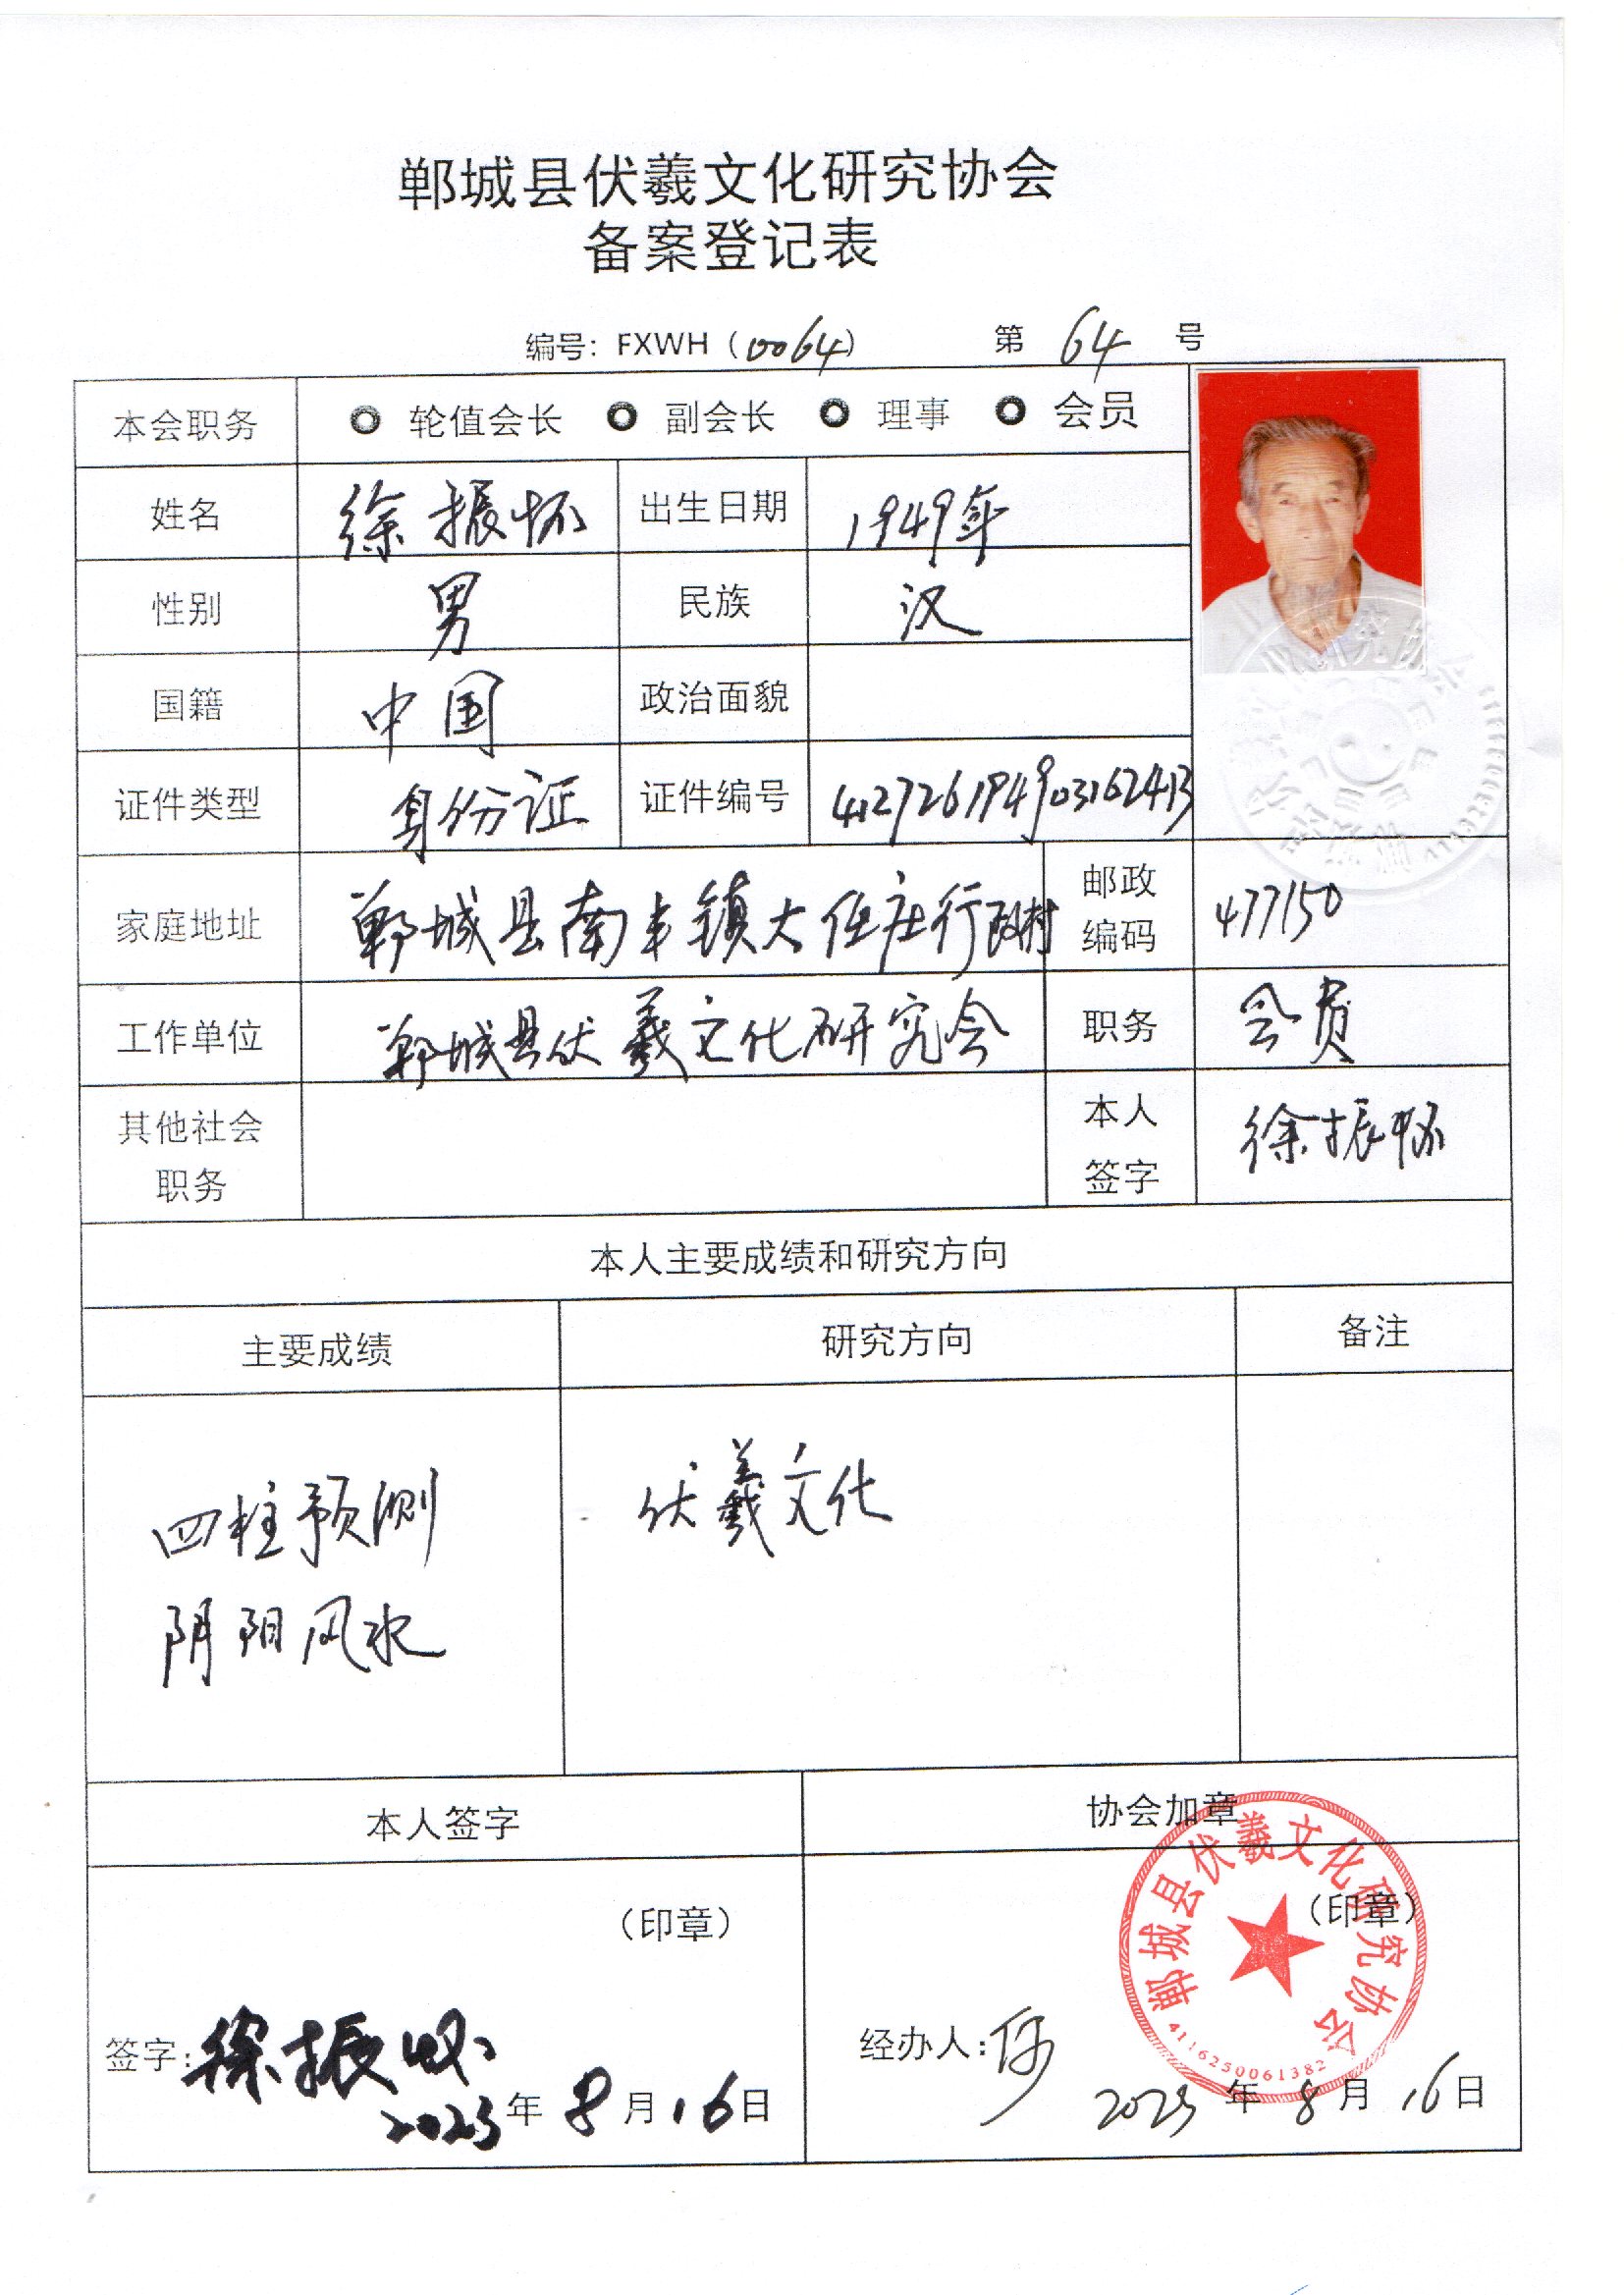 郸城县伏羲文化研究协会
备案登记表
编号：FXWH（0064） 第 64 号
本会职务 轮值会长 副会长 理事 会员
姓名 徐振怀 出生日期 1949年
性别 男 民族 汉
国籍 中国 政治面貌
证件类型 身份证 证件编号 412726194903162413
家庭地址 郸城县南丰镇大任庄行政村 邮政编码 477150
工作单位 郸城县伏羲文化研究会 职务 会员
其他社会职务 本人签字 徐振怀
本人主要成绩和研究方向
主要成绩 研究方向 备注
四柱预测 伏羲文化
阴阳风水
本人签字 协会加章
（印章） （印章）
签字：徐振怀 经办人：
2023年8月16日 2023年8月16日
郸城县伏羲文化研究协会
4116250061382